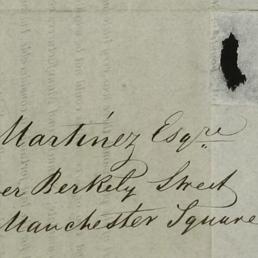 Martínez Esqre
er Berkely Street
Manchester Square